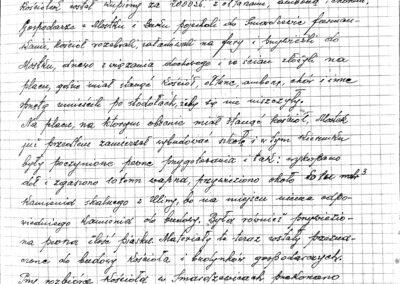 kościółek został kupiony za 700026, z ołtarzami, amboną i chórem,
Gospodarze z Mostku i Sucha pojechali do Smardzewic
kościół rozebrali, załadowali na fury i przywieźli do
Mostku, drzewo z wiązania dachowego i ze ścian złożyli na
placu, gdzie miał stanąć kościół, ołtarze, ambonę, chór i inne
umieścili po stodołach, żeby się nie niszczyły.
Na placu, na którym obecnie miał stanąć kościół, Mostek
już przedtem zamierzał wybudować szkołę i w tym kierunku
były poczynione pewne przygotowania i tak: wykopano
dół i zgaszono wapna, przywieziono około mtr³
kamienia skalnego z Uliny, bo na miejscu niema odpo-
wiedniego kamienia do budowy. Była również przywiezio-
na pewna ilość piasku. Materiały te teraz zostały przezna-
czone do budowy kościoła i budynków gospodarczych.
Przy rozbiórce kościoła w Smardzewicach przekonano